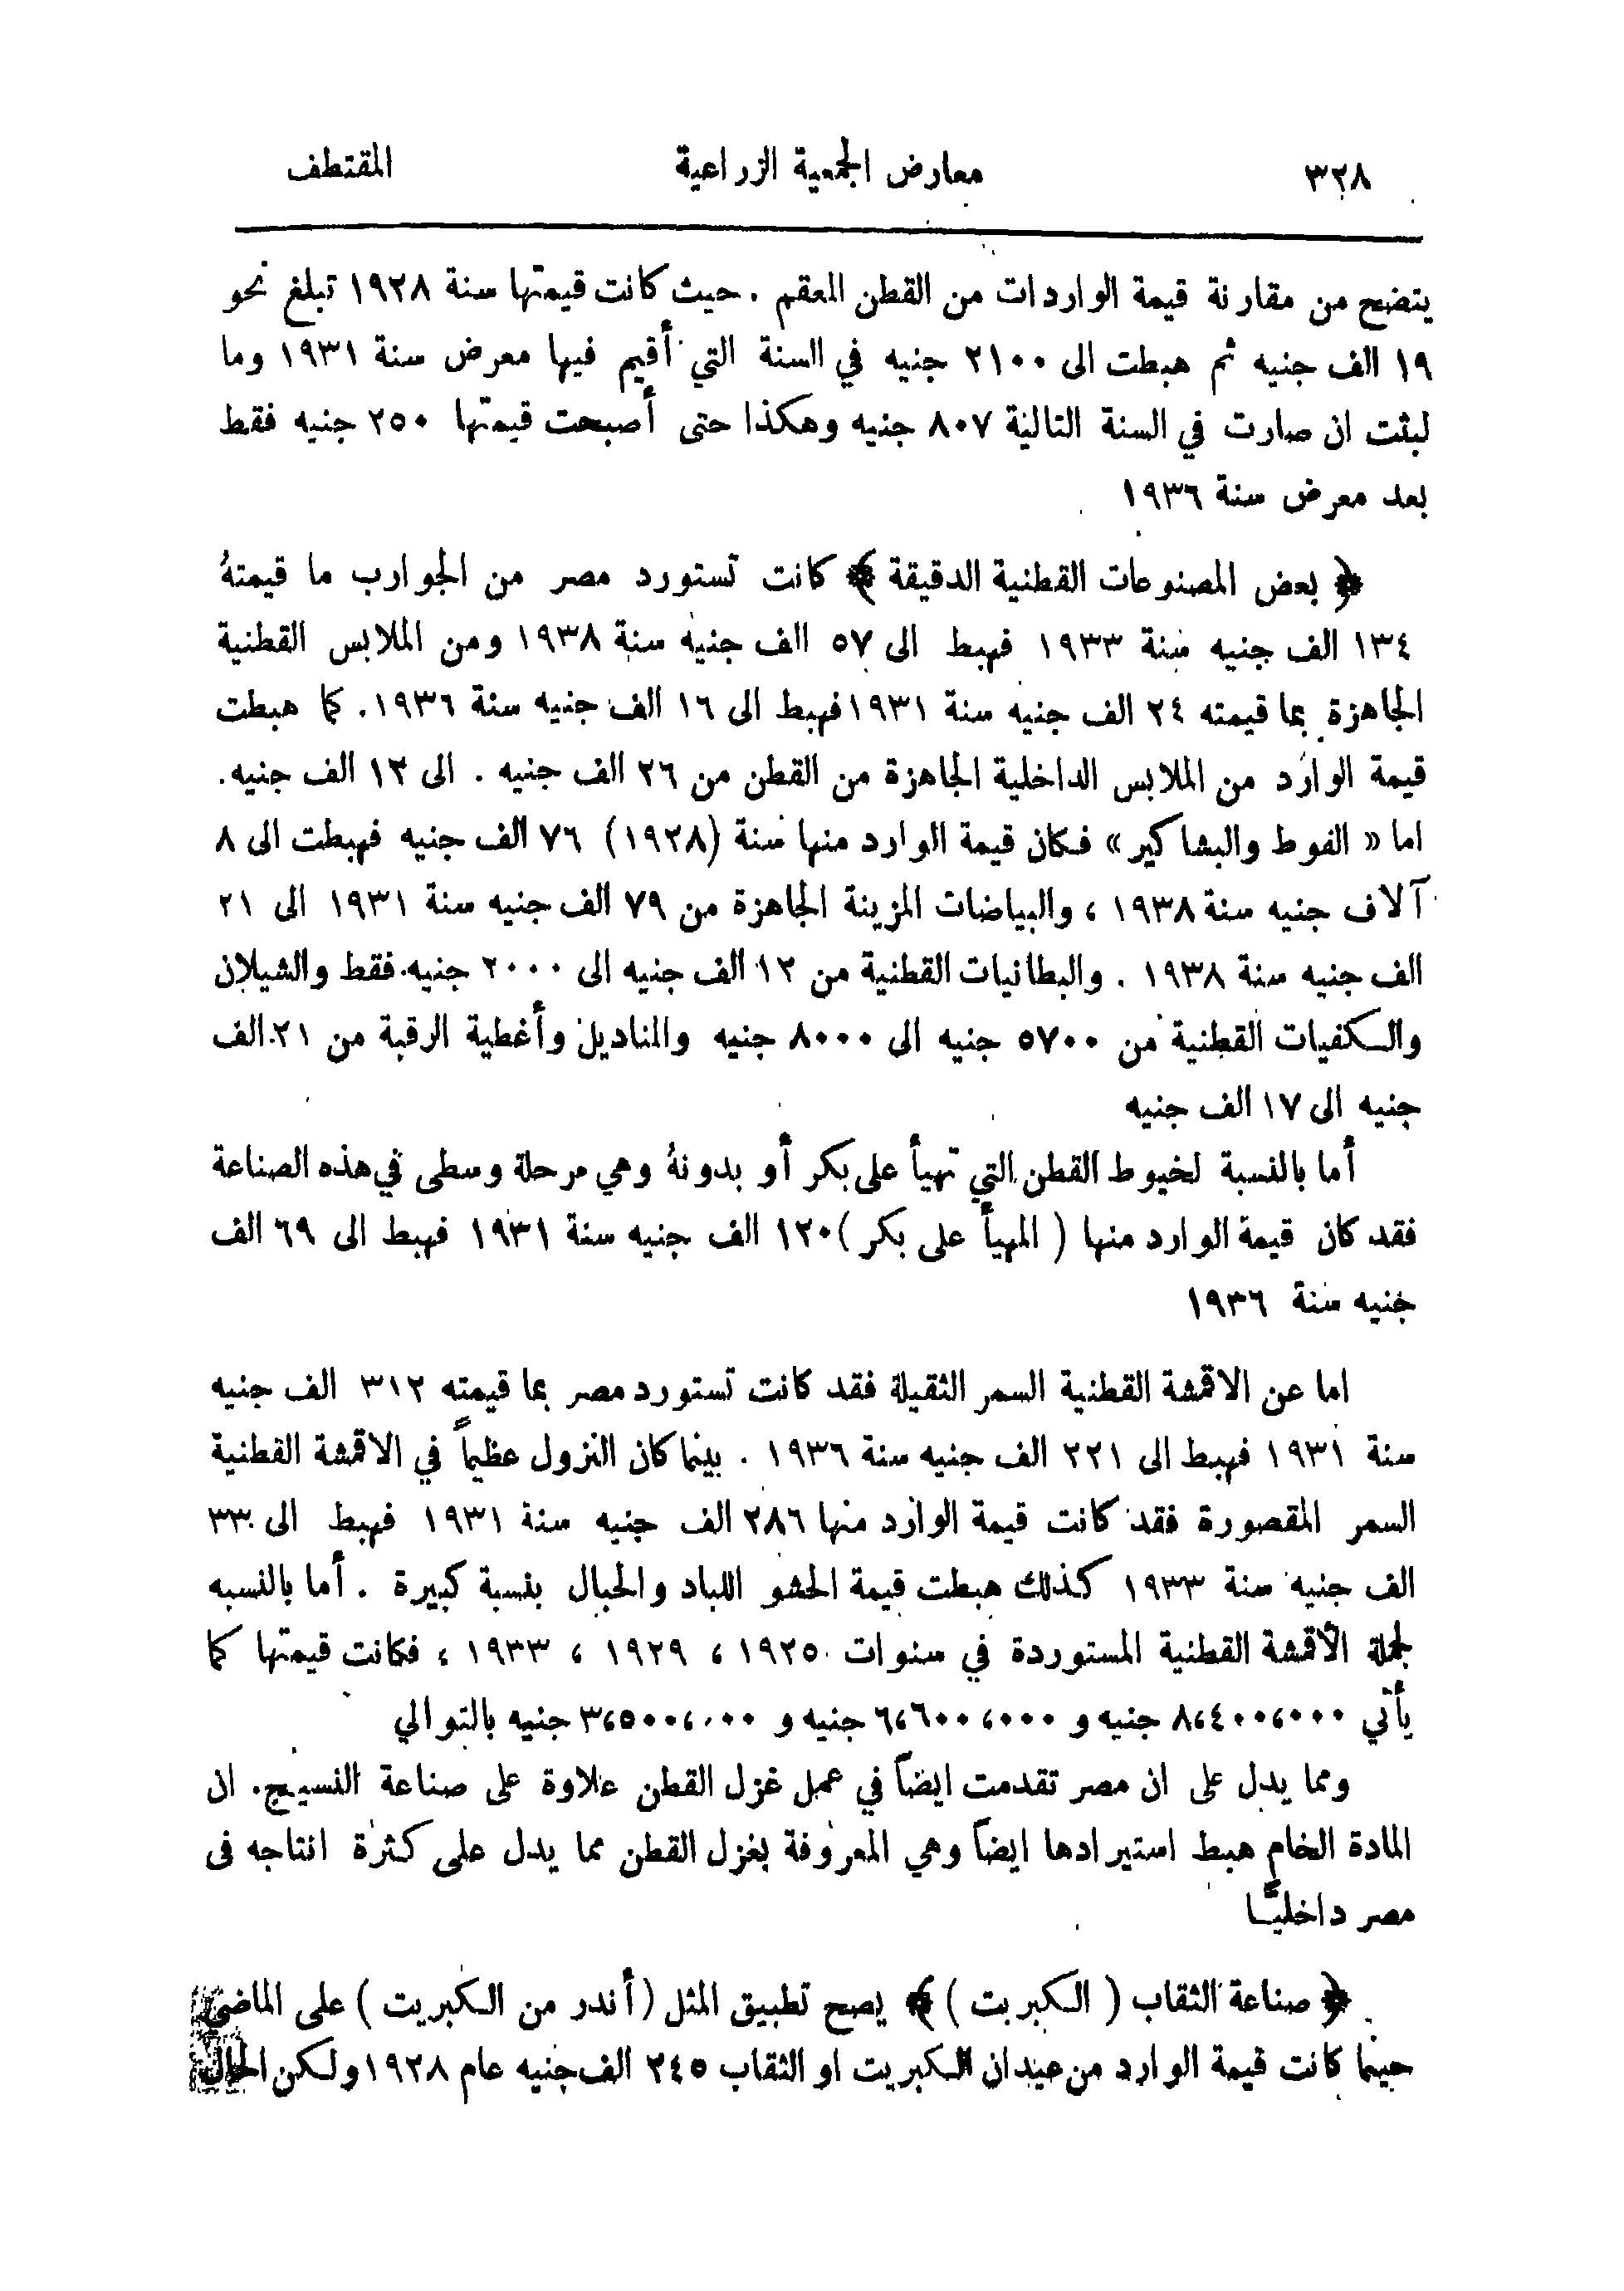 ٣٢٨ معارض الجمعية الزراعية المقتطف
يتضح من مقارنة قيمة الواردات من القطن المعقم . حيث كانت قيمتها سنة ١٩٢٨ تبلغ نحو
١٩ الف جنيه ثم هبطت الى ٢١٠٠ جنيه في السنة التي أقيم فيها معرض سنة ١٩٣١ وما
لبثت ان صارت في السنة التالية ٨٠٧ جنيه وهكذا حتى أصبحت قيمتها ٢٥٠ جنيه فقط
بعد معرض سنة ١٩٣٦
﴿ بعض المصنوعات القطنية الدقيقة ﴾ كانت تستورد مصر من الجوارب ما قيمتهُ
١٣٤ الف جنيه سنة ١٩٣٣ فهبط الى ٥٧ الف جنيه سنة ١٩٣٨ ومن الملابس القطنية
الجاهزة بما قيمته ٢٤ الف جنيه سنة ١٩٣١ فهبط الى ١٦ الف جنيه سنة ١٩٣٦. كما هبطت
قيمة الوارد من الملابس الداخلية الجاهزة من القطن من ٢٦ الف جنيه . الى ١٢ الف جنيه.
اما « الفوط والبشاكير» فكان قيمة الوارد منها سنة (١٩٢٨) ٧٦ الف جنيه فهبطت الى ٨
آلاف جنيه سنة ١٩٣٨ ، والبياضات المزينة الجاهزة من ٧٩ الف جنيه سنة ١٩٣١ الى ٢١
الف جنيه سنة ١٩٣٨ . والبطانيات القطنية من ١٢ الف جنيه الى ٢٠٠٠ جنيه فقط والشيلان
والكفيات القطنية من ٥٧٠٠ جنيه الى ٨٠٠٠ جنيه والمناديل وأغطية الرقبة من ٢١ الف
جنيه الى ١٧ الف جنيه
أما بالنسبة لخيوط القطن التي تهيأ على بكر أو بدونهُ وهي مرحلة وسطى في هذه الصناعة
فقد كان قيمة الوارد منها ( المهيأ على بكر ) ١٢٠ الف جنيه سنة ١٩٣١ فهبط الى ٦٩ الف
جنيه سنة ١٩٣٦
اما عن الاقمشة القطنية السمر الثقيلة فقد كانت تستورد مصر بما قيمته ٣١٢ الف جنيه
سنة ١٩٣١ فهبط الى ٢٢١ الف جنيه سنة ١٩٣٦ . بينما كان النزول عظيماً في الاقمشة القطنية
السمر المقصورة فقد كانت قيمة الوارد منها ٢٨٦ الف جنيه سنة ١٩٣١ فهبط الى ٣٣
الف جنيه سنة ١٩٣٣ كذلك هبطت قيمة الحشو اللباد والحبال بنسبة كبيرة . أما بالنسبه
لجملة الأقمشة القطنية المستوردة في سنوات ١٩٢٥ ، ١٩٢٩ ، ١٩٣٣ ، فكانت قيمتها كما
يأتي ٨،٤٠٠،٠٠٠ جنيه و ٦،٦٠٠،٠٠٠ جنيه و ٣،٥٠٠،٠٠٠ جنيه بالتوالي
ومما يدل على ان مصر تقدمت ايضاً في عمل غزل القطن علاوة على صناعة النسيج. ان
المادة الخام هبط استيرادها ايضاً وهي المعروفة بغزل القطن مما يدل على كثرة انتاجه فى
مصر داخليًّا
﴿ صناعة الثقاب ( الكبريت ) ﴾ يصح تطبيق المثل ( أندر من الكبريت ) على الماضي
حينما كانت قيمة الوارد من عيدان الكبريت او الثقاب ٢٤٥ الف جنيه عام ١٩٢٨ ولكن الحال